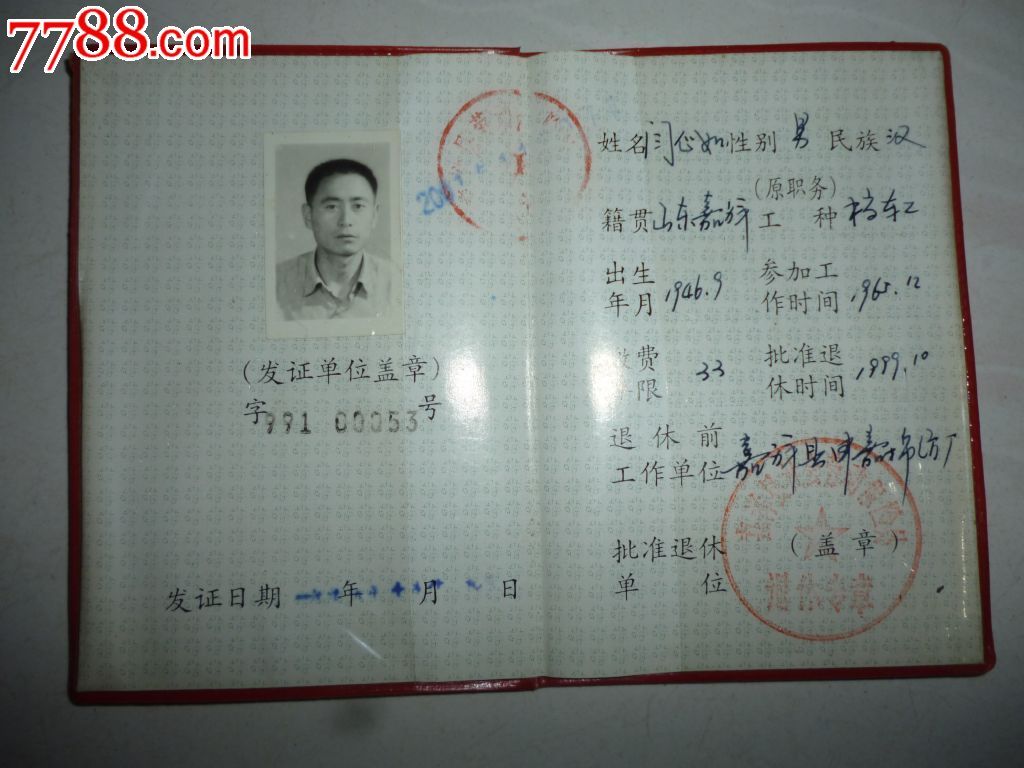 7788.com
(发证单位盖章)
字991 00053号
发证日期 年 月 日
姓名 性别 男 民族 汉
(原职务)
籍贯 山东嘉祥 工 种
出生 参加工
年月 1946.9 作时间 1965.12
费 批准退
限 33 休时间 1999.10
退休前
工作单位 嘉祥县 厂
批准退休 (盖章)
单 位
退休专章